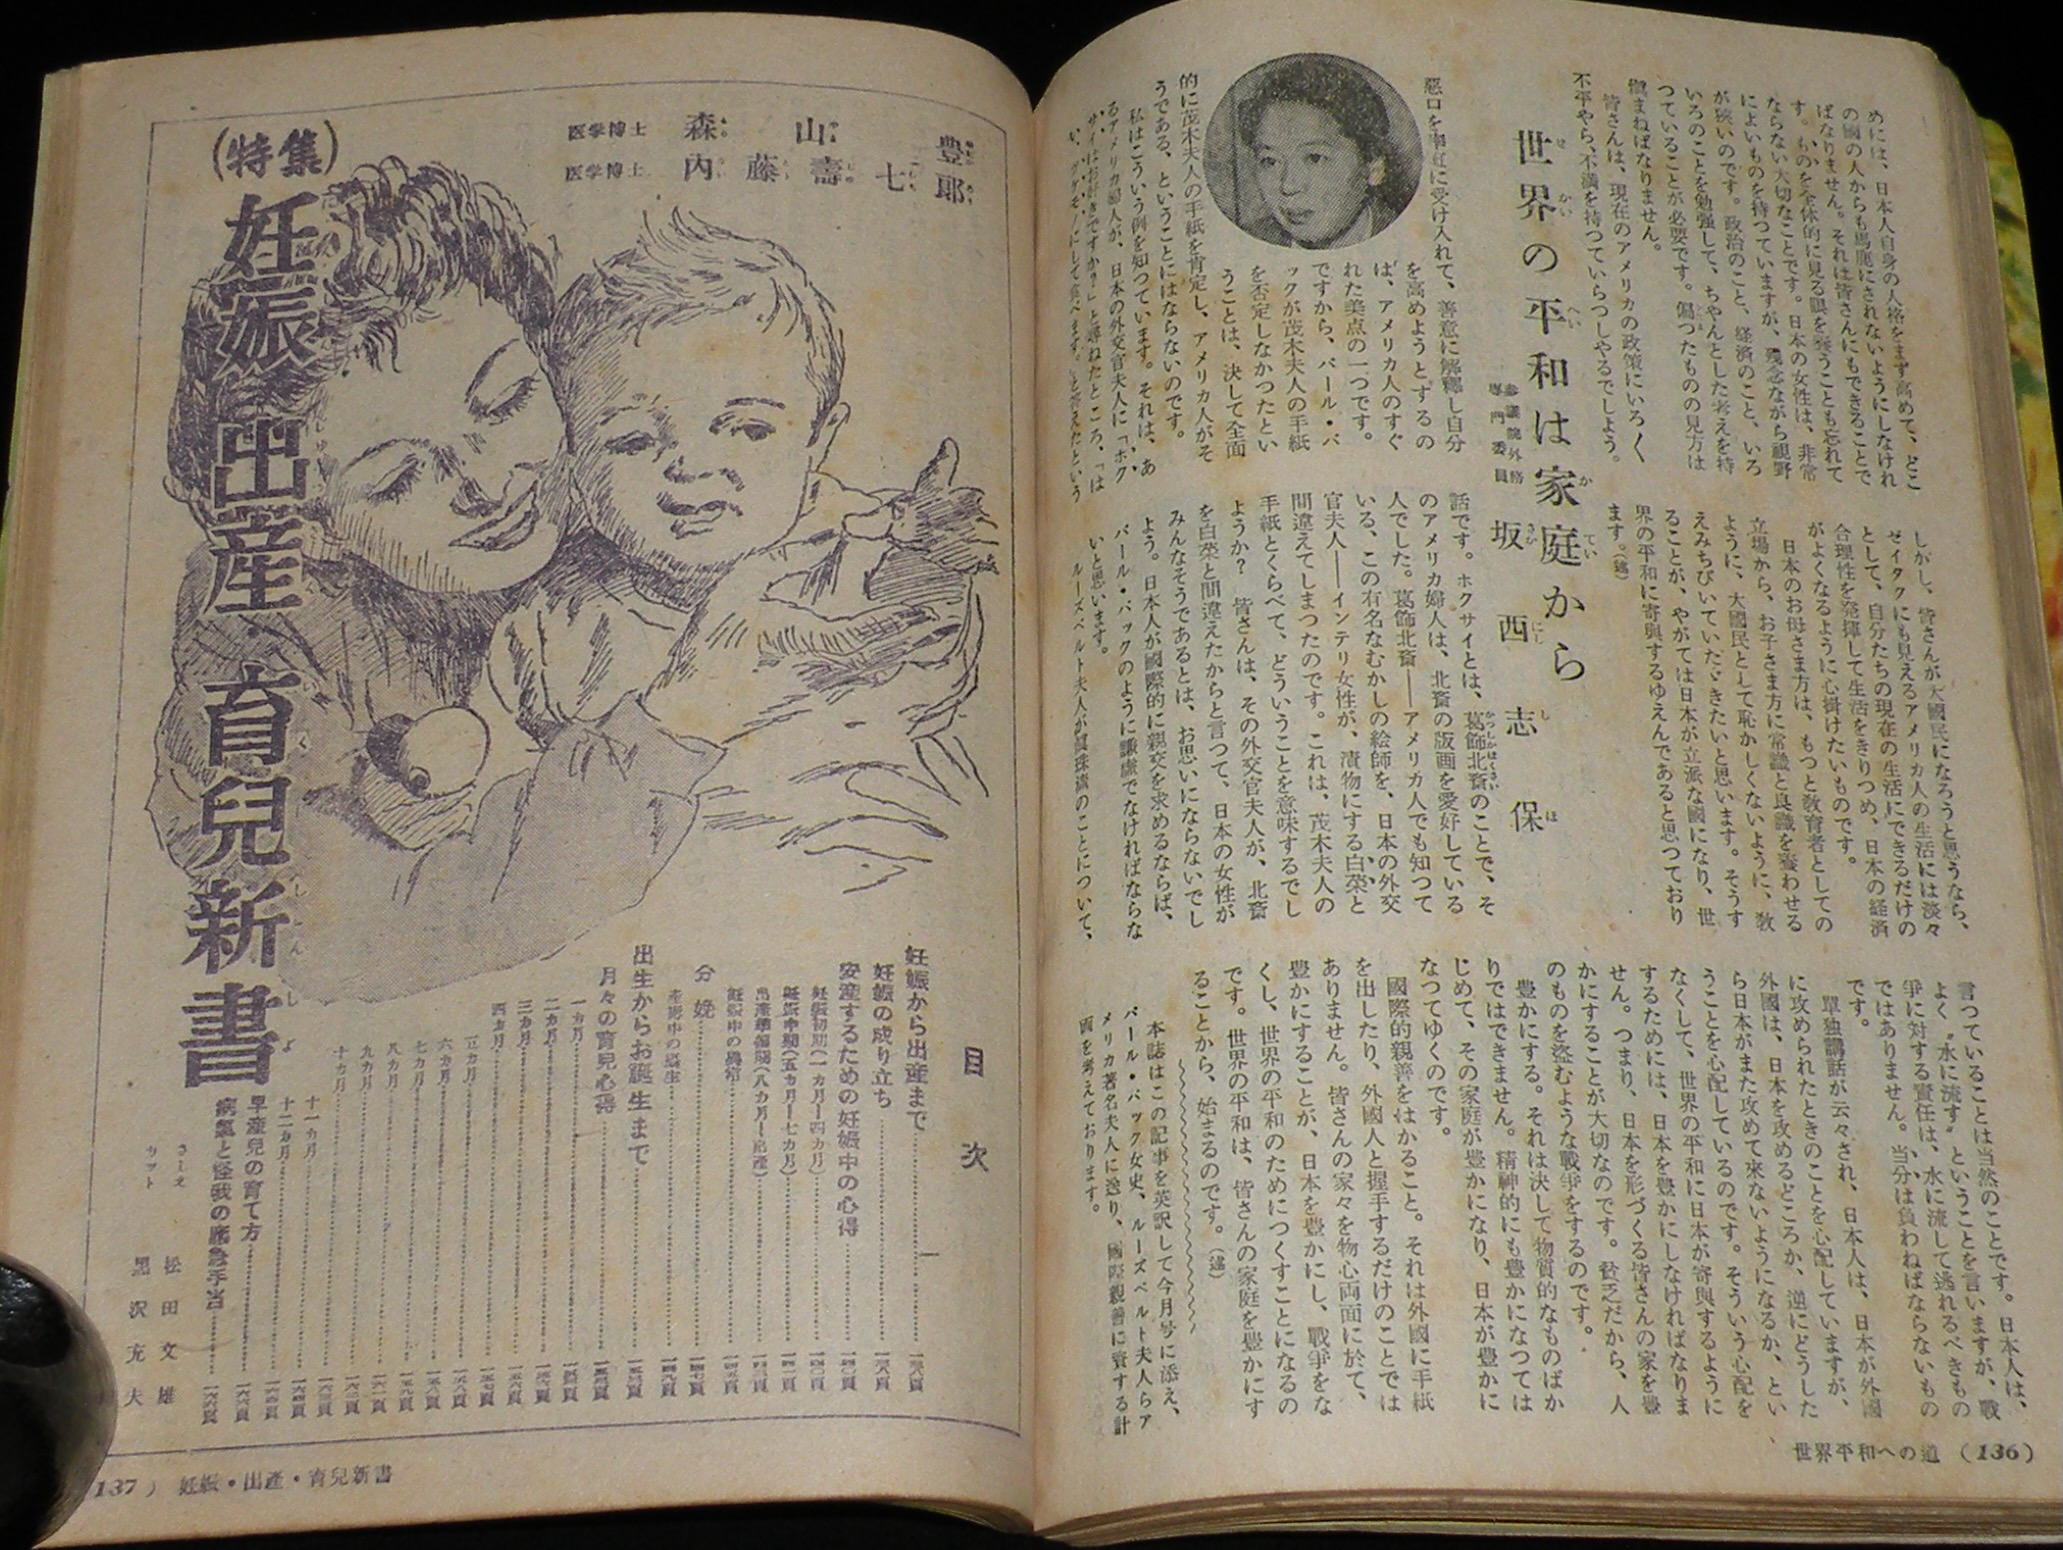 めには、日本人自身の人格をまず高めて、どこ
の國の人からも馬鹿にされないようにしなけれ
ばなりません。それは皆さんにもできることで
す。ものを全体的に見る眼を養うことも忘れて
ならない大切なことです。日本の女性は、非常
によいものを持つていますが、残念ながら視野
が狭いのです。政治のこと、経済のこと、いろ
いろのことを勉強して、ちやんとした考えを持
つていることが必要です。偏つたものの見方は
愼まねばなりません。
皆さんは、現在のアメリカの政策にいろく
不平やら、不満を持つていらつしやるでしよう。
しかし、皆さんが大國民になろうと思うなら、
ゼイタクにも見えるアメリカ人の生活には淡々
として、自分たちの現在の生活にできるだけの
合理性を発揮して生活をきりつめ、日本の経済
がよくなるように心掛けたいものです。
日本のお母さま方は、もつと敎育者としての
立場から、お子さま方に常識と良識を養わせる
ように、大國民として恥かしくないように、敎
えみちびいていただきたいと思います。そうす
ることが、やがては日本が立派な國になり、世
界の平和に寄與するゆえんであると思つており
ます。(談)
世界の平和は家庭から
参議院外務
専門委員
坂西志保
惡口を率直に受け入れて、善意に解釋し自分
を高めようとするの
は、アメリカ人のすぐ
れた美点の一つです。
ですから、パール・バ
ックが茂木夫人の手紙
を否定しなかつたとい
うことは、決して全面
的に茂木夫人の手紙を肯定し、アメリカ人がそ
うである、ということにはならないのです。
私はこういう例を知つています。それは、あ
るアメリカ婦人が、日本の外交官夫人に「ホク
サイはお好きですか?」と尋ねたところ、「は
話です。ホクサイとは、葛飾北斎のことで、そ
のアメリカ婦人は、北斎の版画を愛好している
人でした。葛飾北斎――アメリカ人でも知つて
いる、この有名なむかしの絵師を、日本の外交
官夫人――インテリ女性が、漬物にする白菜と
間違えてしまつたのです。これは、茂木夫人の
手紙とくらべて、どういうことを意味するでし
ようか? 皆さんは、その外交官夫人が、北斎
を白菜と間違えたからと言つて、日本の女性が
みんなそうであるとは、お思いにならないでし
よう。日本人が國際的に親交を求めるならば、
パール・バックのように謙虚でなければならな
いと思います。
ルーズベルト夫人が眞珠湾のことについて、
言つていることは当然のことです。日本人は、
よく〝水に流す〟ということを言いますが、戰
爭に対する責任は、水に流して逃れるべきもの
ではありません。当分は負わねばならないもの
です。
單独講話が云々され、日本人は、日本が外國
に攻められたときのことを心配していますが、
外國は、日本を攻めるどころか、逆にどうした
ら日本がまた攻めて來ないようになるか、とい
うことを心配しているのです。そういう心配を
なくして、世界の平和に日本が寄與するように
するためには、日本を豊かにしなければなりま
せん。つまり、日本を形づくる皆さんの家を豊
かにすることが大切なのです。貧乏だから、人
のものを盗むような戰爭をするのです。
豊かにする。それは決して物質的なものばか
りではできません。精神的にも豊かになつては
じめて、その家庭が豊かになり、日本が豊かに
なつてゆくのです。
國際的親善をはかること。それは外國に手紙
を出したり、外國人と握手するだけのことでは
ありません。皆さんの家々を物心両面に於て、
豊かにすることが、日本を豊かにし、戰爭をな
くし、世界の平和のためにつくすことになるの
です。世界の平和は、皆さんの家庭を豊かにす
ることから、始まるのです。(談)
本誌はこの記事を英訳して今月号に添え、
パール・バック女史、ルーズベルト夫人らア
メリカ著名夫人に送り、國際親善に資する計
画を考えております。
世界平和への道 (136)
(特集)
妊娠・出産・育兒新書
医学博士 森山豊
医学博士 内藤壽七郎
目次
妊娠から出産まで 一三八頁
妊娠の成り立ち 一三八頁
安産するための妊娠中の心得 一四〇頁
妊娠初期(一カ月―四カ月) 一四〇頁
妊娠中期(五カ月―七カ月)
出産準備期(八カ月―出産)
妊娠中の異常
分娩
産褥中の養生
出生からお誕生まで
月々の育兒心得
一カ月
二カ月
三カ月
四カ月
五カ月
六カ月
七カ月
八カ月
九カ月
十カ月
十一カ月
十二カ月
早産兒の育て方
病氣と怪我の應急手当
さしえ 松田文雄
カット 黒沢充夫
137) 妊娠・出産・育兒新書